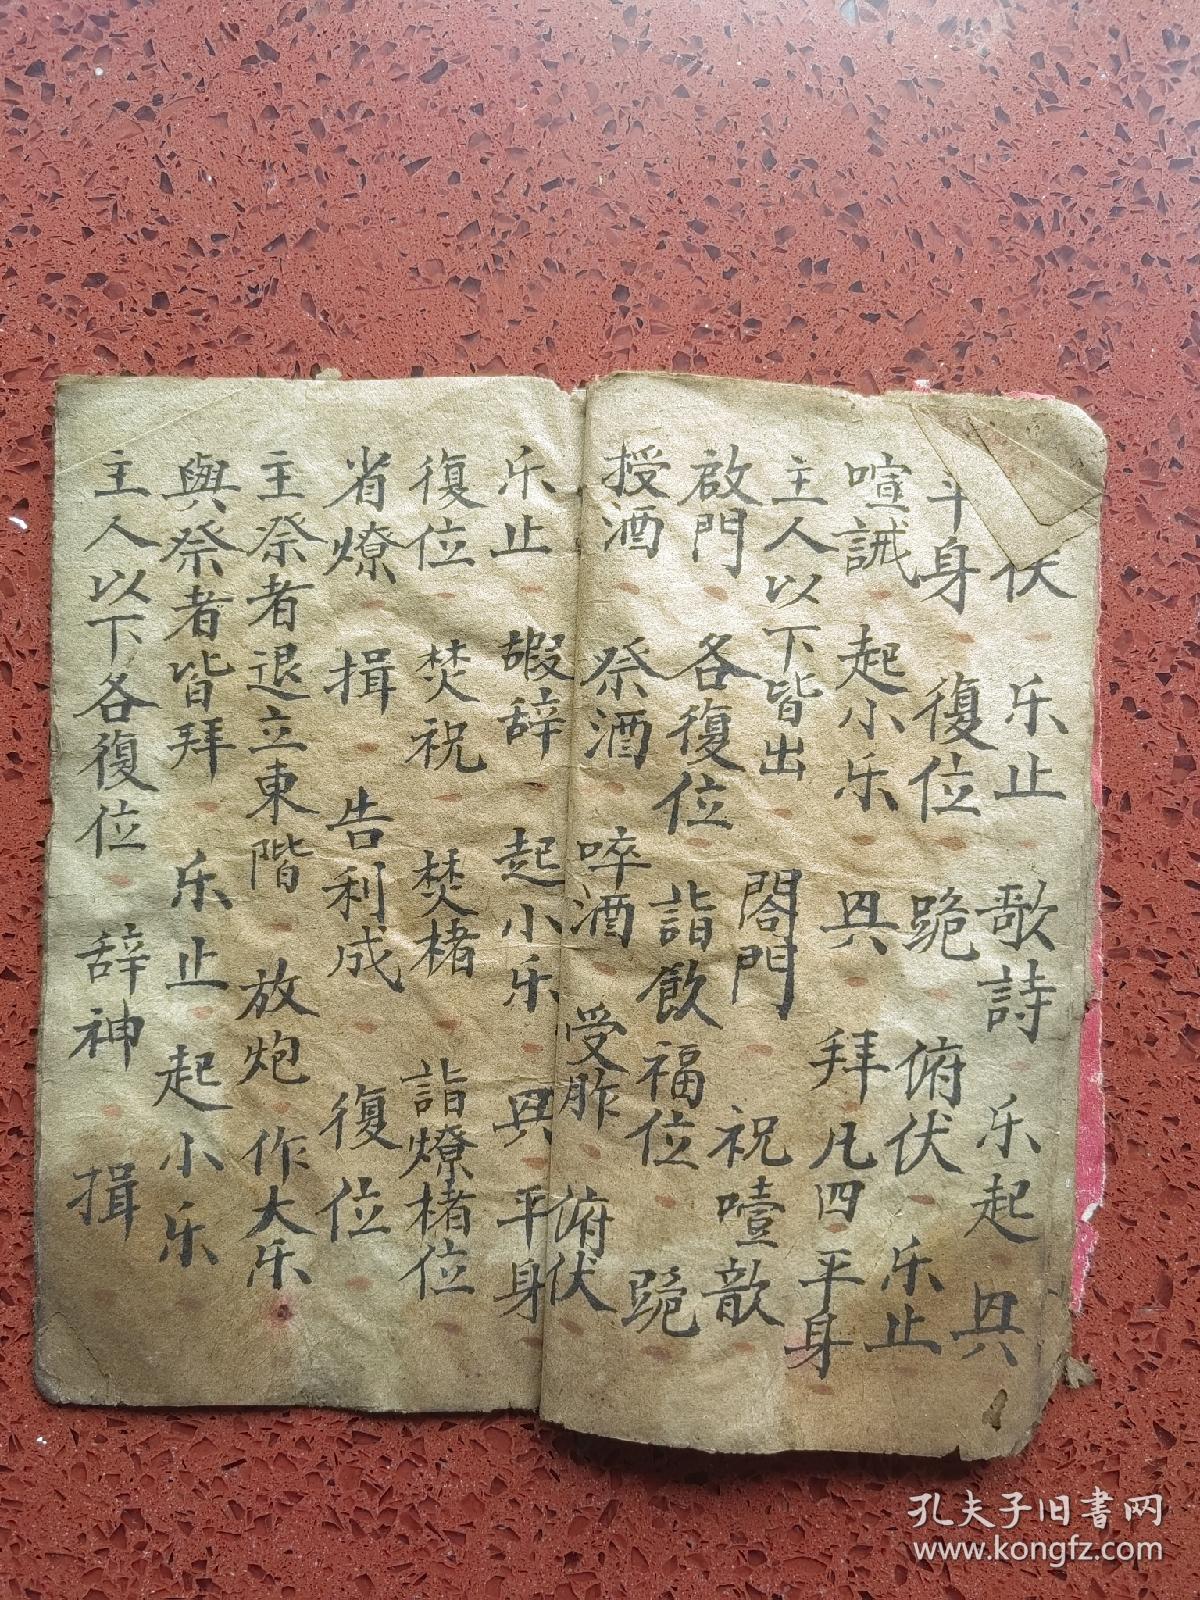 伏 乐止 歌詩 乐起 興
平身 復位 跪 俯伏 乐止
喧誡 起小乐 興 拜凡四平身
主人以下皆出 閤門 祝噎歆
啟門 各復位 詣飲福位 跪
授酒 祭酒 啐酒 受胙 俯伏
乐止 嘏辞 起小乐 興 平身
復位 焚祝 焚楮 詣燎楮位
省燎 揖 告利成 復位
主祭者退立東階 放炮 作大乐
與祭者皆拜 乐止 起小乐
主人以下各復位 辞神 揖
孔夫子旧書网
www.kongfz.com